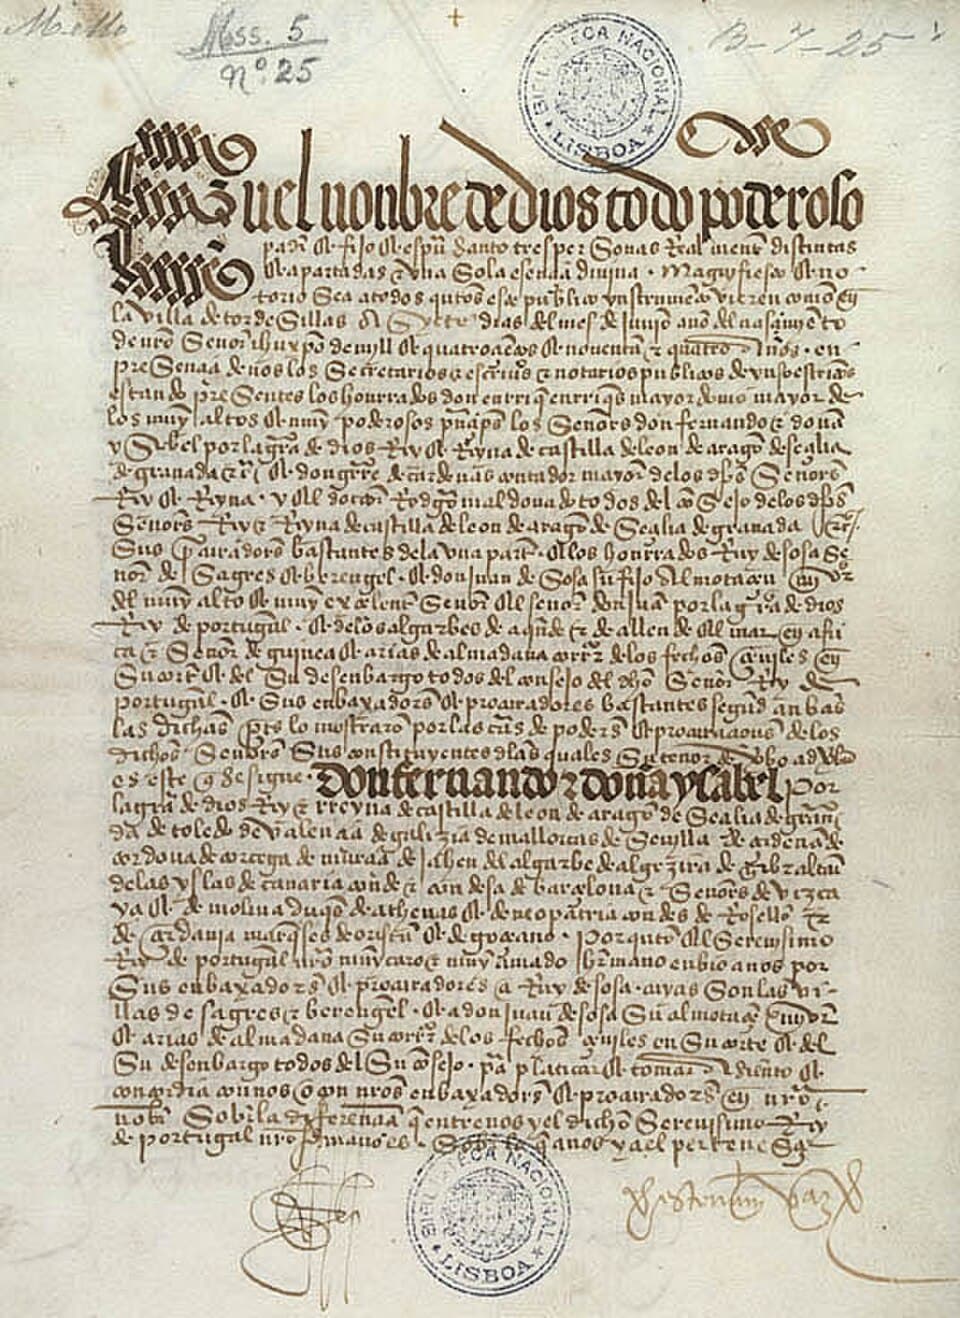 Mello
Mss. 5
Nº. 25
B-7-25
BIBLIOTECA NACIONAL
LISBOA
En el nonbre de dios todo poderoso
padre & fijo & espu santo tres personas Real mente distintas
& apartadas & vna Sola esençia diuina. Magnifiesto & no-
torio Sea a todos quantos este publico ynstrumento vieren como en
la villa de tordesillas a Syete dias del mes de junio año del nasçimiento
de nro Señor ihu xpo de mill & quatroçientos & nouenta & quatro años. en
presençia de nos los Secretarios & escriuanos & notarios publicos de yuso escriptos
estando presentes los honrrados don enrrique enrriques mayordomo mayor de
los muy altos & muy poderosos prinçipes los Señores don fernando & doña
ySabel por la graçia de dios Rey & Reyna de castilla de leon de aragon de seçilia
de granada & & don guterre de cardenas contador mayor de los dichos Señores
Rey & Reyna. y el doctor Rodrigo maldonado todos del consejo de los dichos
Señores Rey & Reyna de castilla de leon de aragon de Seçilia de granada &
Sus procuradores bastantes de la vna parte. & los honrrados Ruy de sosa Se
ñor de Sagres & berengel. & don juan de Sosa su fijo almotaçen mayor
del muy alto & muy exçelente Señor el señor don juan por la graçia de dios
Rey de portugal. & de los algarbes de aquende & de allende el mar en afri
ca & Señor de guinea & arias de almadana corregidor de los fechos çeuiles en
Su corte & del Su desenbargo todos del consejo del dicho Señor Rey de
portugal. & Sus enbaxadores & procuradores bastantes segund anbas
las dichas partes lo mostraron por las cartas de poderes & procuraçiones de los
dichos Señores Sus constituyentes de las quales Su tenor de verbo ad verbum
es este que se sigue. Don fernando & doña ysabel por
la graçia de dios Rey & rreyna de castilla de leon de aragon de Seçilia de granada
de toledo de valençia de galizia de mallorcas de Seuilla de çerdeña de
cordoua de corçega de murçia de jahen del algarbe de algezira de gibraltar
de las yslas de canaria conde & condesa de barçelona & Señores de vizca
ya & de molina duques de athenas & de neopatria condes de Rosellon &
de çerdania marqueses de oristan & de goçeano. Por quanto el Serenisimo
Rey de portugal nro muy caro & muy amado hermano enbio a nos por
Sus enbaxadores & procuradores a Ruy de sosa. cuyas Son las vi-
llas de sagres & berengel. & a don juan de sosa Su almotaçen mayor
& arias de almadana Su corregidor de los fechos çeuiles en Su corte & del
Su desenbargo todos del Su consejo. para platicar & tomar asiento &
concordia con nos o con nros enbaxadores & procuradores en nro
nonbre Sobre la diferençia que entre nos y el dicho Serenisimo Rey
de portugal nro hermano es. Sobre lo que a nos y a el perteneçe
BIBLIOTECA NACIONAL
LISBOA